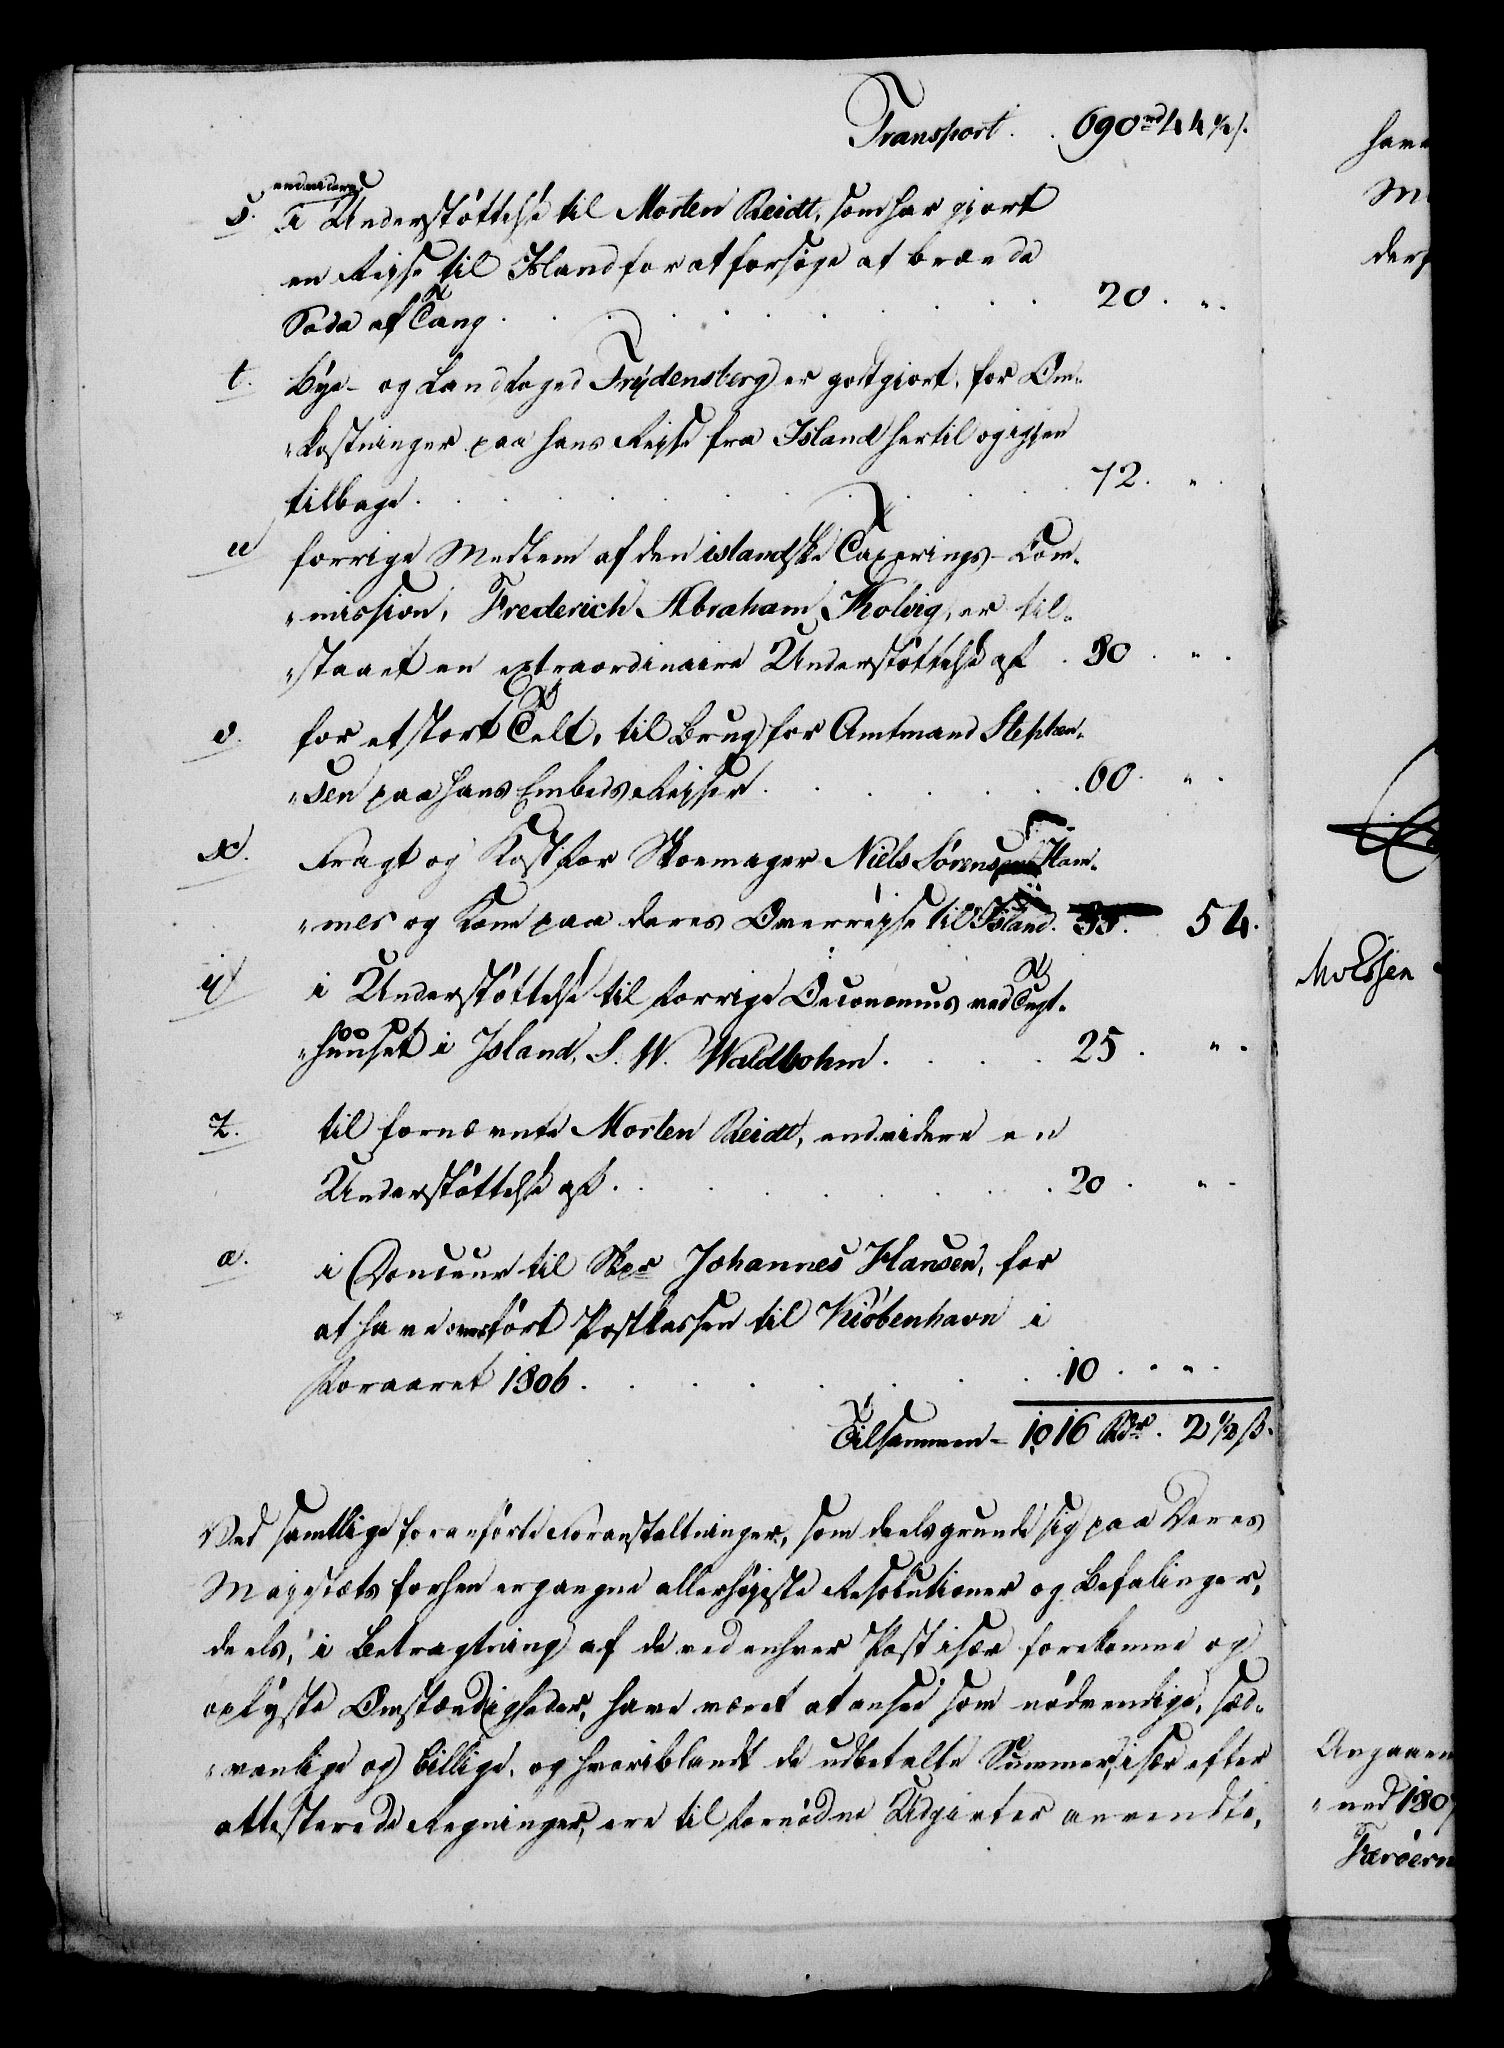 Transport. . 690 rd 44 ½ s.
endvidere
s. i Understøttelse til Morten Reidt, som har giort
en Rejse til Island for at forsøge at brænde
Soda af Tang . . . . . . . . 20. „.
t. Bye- og Landfoged Frydensberg er godtgiort, for Om-
„kostninger paa hans Rejse fra Island hertil og igjen
tilbage . . . . . . . . 72. „.
u forrige Medlem af den islandske Taxerings-Com-
„mission, Frederich Abraham Kolvig, er til-
„staaet en extraordinaire Understøttelse af . 80. „.
v. for et stort Telt, til Brug for Amtmand Stephen-
„sen paa hans Embeds Rejser . . . . . . 60. „.
x. Fragt og Kost for Skoemager Niels Sørensen Ham-
„mer og Kone paa deres Overrejse til Island. 35. 54.
y i Understøttelse til forrige Oeconomus ved Tugt-
„huuset i Island, S. W. Waldbohm . . . . 25. „.
z. til fornævnte Morten Reidt, endvidere en
Understøttelse af . . . . . . . 20. „.
a. i Douceur til Skpr Johannes Hansen, for
at have overført Postkassen til Kiøbenhavn i
Foraaret 1806 . . . . . . . 10. „.
Tilsammen - 1016 Rdr. 2 ½ ß.
Ved samtlige foranførte Foranstaltninger, som deels grunde sig paa Deres
Majestæts forhen ergangne allerhøjeste Resolutioner og Befalinger,
deels, i Betragtning af de ved enhver Post især forekomne og
oplyste Omstændigheder, have været at ansee som nødvendige, sæd-
„vanlige og billige, og hvoriblandt de udbetalte Summer, især efter
attesterede Regninger, ere til fornødne Udgivter anvendte,
have
M
der
MvEssen
Angaaen
„ned 1807
Færøern